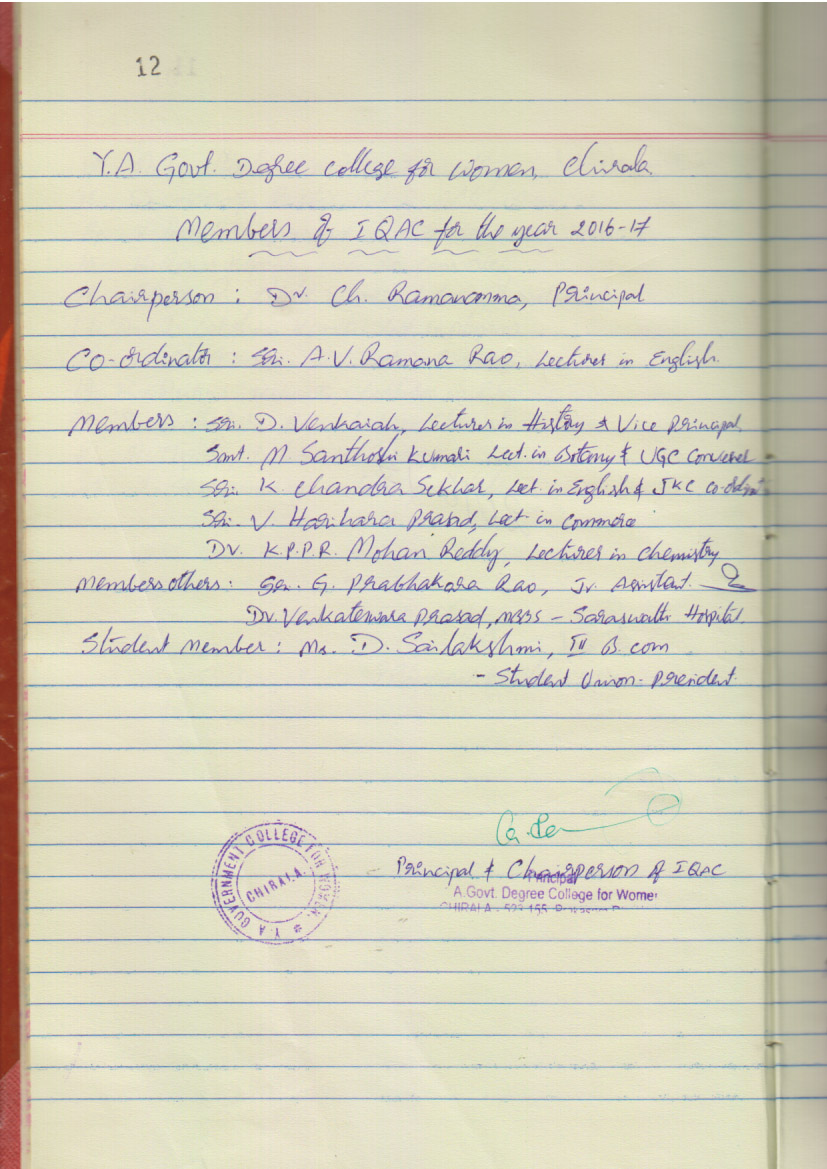 12
Y.A. Govt. Degree College for Women, Chirala.
Members of IQAC for the year 2016-17
Chairperson : Dr. Ch. Ramanamma, Principal
Co-ordinator : Sri. A.V. Ramana Rao, Lecturer in English.
Members : Sri. D. Venkaiah, Lecturer in History & Vice Principal.
Smt. M Santhoshi Kumari Lect. in Botany & UGC Convener
Sri. K. Chandra Sekhar, Lect. in English & JKC Co-ordinator
Sri. V. Harihara Prasad, Lect in Commerce
Dr. K.P.P.R. Mohan Reddy, Lecturer in Chemistry
Members others : Sri. G. Prabhakara Rao, Jr. Assistant.
Dr. Venkateswara Prasad, MBBS - Saraswathi Hospital.
Student Member : Ms. D. Sailakshmi, III B.com
- Student Union - President.
Principal & Chairperson of IQAC
Principal
A.Govt. Degree College for Women
CHIRALA - 523 155
Y.A GOVERNMENT COLLEGE FOR WOMEN.
CHIRALA.